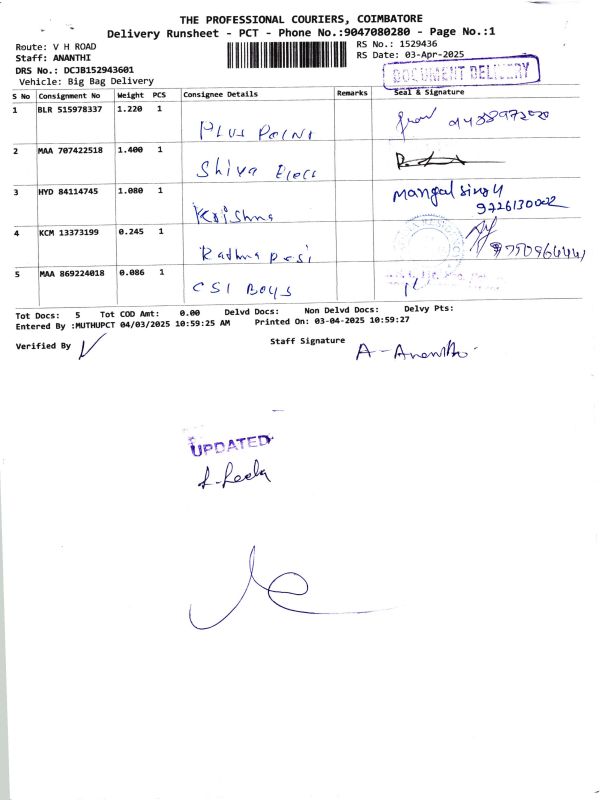 THE PROFESSIONAL COURIERS, COIMBATORE
Delivery Runsheet - PCT - Phone No.:9047080280 - Page No.:1
Route: V H ROAD
Staff: ANANTHI
DRS No.: DCJB152943601
Vehicle: Big Bag Delivery
RS No.: 1529436
RS Date: 03-Apr-2025
DOCUMENT DELIVERY
S No Consignment No Weight PCS Consignee Details Remarks Seal & Signature
1 BLR 515978337 1.220 1 Plus Point
2 MAA 707422518 1.400 1 Shiva Elecs
3 HYD 84114745 1.080 1 Krishna Mangal singh
9726130002
4 KCM 13373199 0.245 1
5 MAA 869224018 0.086 1 CSI Boys
Tot Docs: 5 Tot COD Amt: 0.00 Delvd Docs: Non Delvd Docs: Delvy Pts:
Entered By :MUTHUPCT 04/03/2025 10:59:25 AM Printed On: 03-04-2025 10:59:27
Verified By Staff Signature
A-Ananthi
UPDATED